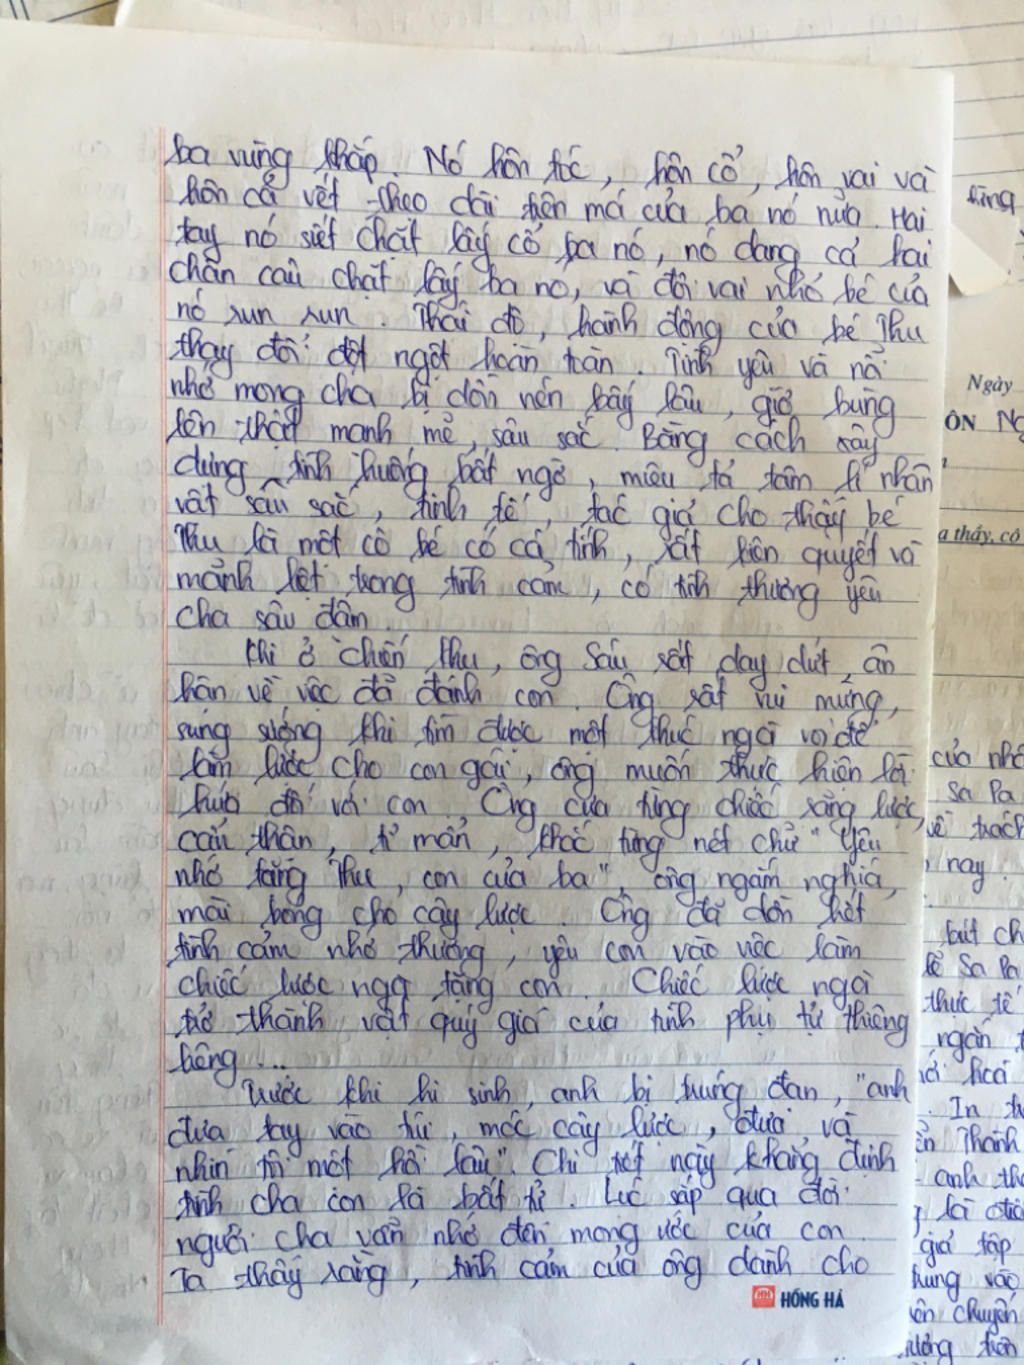 ba vùng khắp. Nó hôn tóc, hôn cổ, hôn vai và
hôn cả vết thẹo dài trên má của ba nó nữa. Hai
tay nó siết chặt lấy cổ ba nó, nó dang cả hai
chân câu chặt lấy ba nó, và đôi vai nhỏ bé của
nó run run. Thái độ, hành động của bé Thu
thay đổi đột ngột hoàn toàn. Tình yêu và nỗi
nhớ mong cha bị dồn nén bấy lâu, giờ bùng
lên thật mạnh mẽ, sâu sắc. Bằng cách xây
dựng tình huống bất ngờ, miêu tả tâm lí nhân
vật sâu sắc, tinh tế, tác giả cho thấy bé
Thu là một cô bé có cá tính, rất kiên quyết và
mãnh liệt trong tình cảm, có tình thương yêu
cha sâu đậm.
Khi ở chiến khu, ông Sáu rất day dứt, ân
hận về việc đã đánh con. Ông rất vui mừng,
sung sướng khi tìm được một khúc ngà voi để
làm lược cho con gái, ông muốn thực hiện lời
hứa đối với con. Ông cưa từng chiếc răng lược,
cẩn thận, tỉ mẩn, khắc từng nét chữ "Yêu
nhớ tặng Thu, con của ba", ông ngắm nghía,
mài bóng cho cây lược. Ông đã dồn hết
tình cảm nhớ thương, yêu con vào việc làm
chiếc lược ngà tặng con. Chiếc lược ngà
trở thành vật quý giá của tình phụ tử thiêng
liêng...
Trước khi hi sinh, anh bị trúng đạn, "anh
đưa tay vào túi, móc cây lược, đưa và
nhìn tôi một hồi lâu". Chi tiết này khẳng định
tình cha con là bất tử. Lúc sắp qua đời
người cha vẫn nhớ đến mong ước của con.
Ta thấy rằng, tình cảm của ông dành cho
HỒNG HÀ
Ngày
ÔN
a thầy, cô
của nhâ
Sa Pa
về trách
nay.
bút ch
Sa Pa
thực tế
ngắn
In
Thành
anh
là
giả tập
trung vào
chuyến